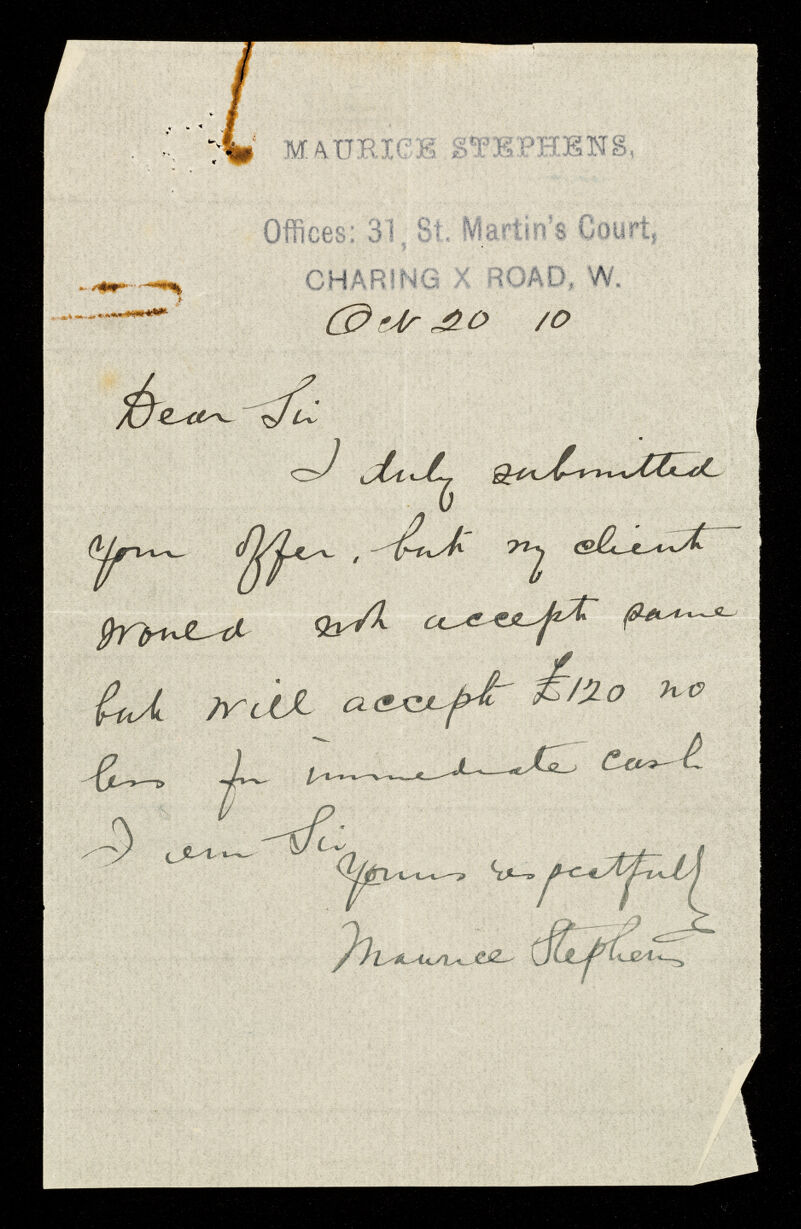 MAURICE STEPHENS,
Offices: 31, St. Martin's Court,
CHARING X ROAD, W.
Oct 20 10
Dear Sir
I duly submitted
your offer, but my client
would not accept same
but will accept £120 no
less for immediate cash
I am Sir
Yours respectfully
Maurice Stephens